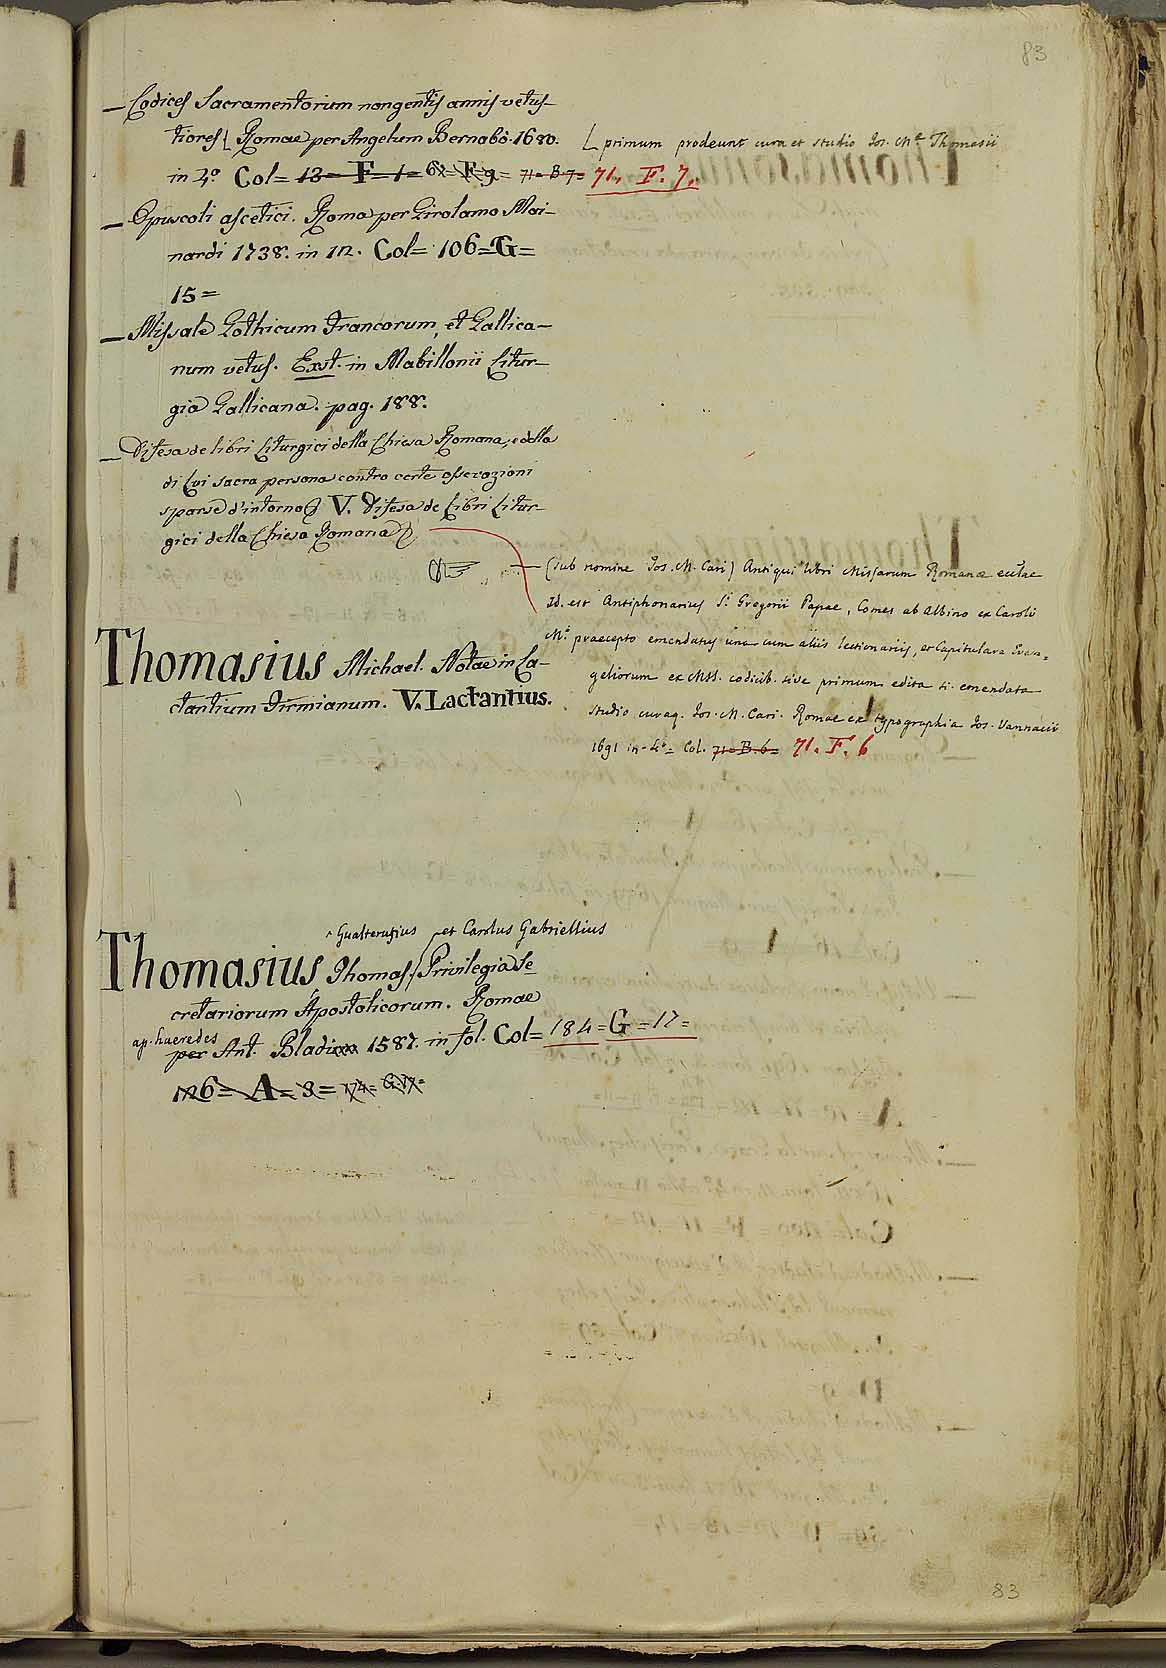 83
— Codices Sacramentorum nongentis annis vetus-
tiores [ Romae per Angelum Bernabò. 1680.
[ primum prodeunt cura et studio Jos. Mª Thomasii
in 4º Col= 13= F= 1= 6= F 9= 71= B 7= 71. F. 7.
— Opuscoli ascetici. Roma per Girolamo Mai-
nardi 1738. in 12. Col= 106=G=
15=
— Missale Gothicum Francorum, et Gallica-
num vetus. Ext. in Mabillonii Litur-
gia Gallicana. pag. 188.
— Difesa de libri Liturgici della Chiesa Romana, e della
di Lui sacra persona contro certe osservazioni
sparse d'intorno V. Difesa de Libri Litur-
gici della Chiesa Romana
— (sub nomine Jos. M. Cari) Antiqui libri Missarum Romanæ eccłae
Id. est Antiphonarius S. Gregorii Papae, Comes ab Albino ex Caroli
M. praecepto emendatus una cum aliis lectionariis, et Capitulare Evan=
geliorum ex MSS. codicib. sive primum edita s. emendata
studio curaq. Jos. M. Cari. Romae ex typographia Jos. Vannacii
1691 in-4º= Col. 71= B. 6= 71. F. 6
Thomasius Michael. Notae in La-
ctantium Firmianum. V. Lactantius.
Gualterutius et Carolus Gabriellius
Thomasius Thomas, Privilegia Se
cretariorum Apostolicorum. Romae
ap. haeredes
per Ant. Bladi 1587. in fol. Col= 184=G=17=
126= A= 3= 174= G 17=
83